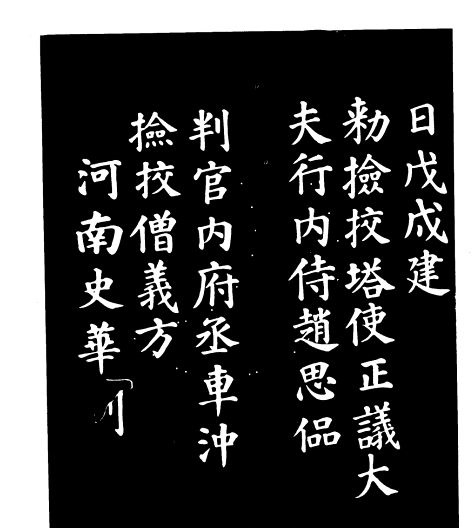 日戊戌建
勑撿挍塔使正議大
夫行内侍趙思偘
判官内府丞車沖
撿挍僧義方
河南史華刊